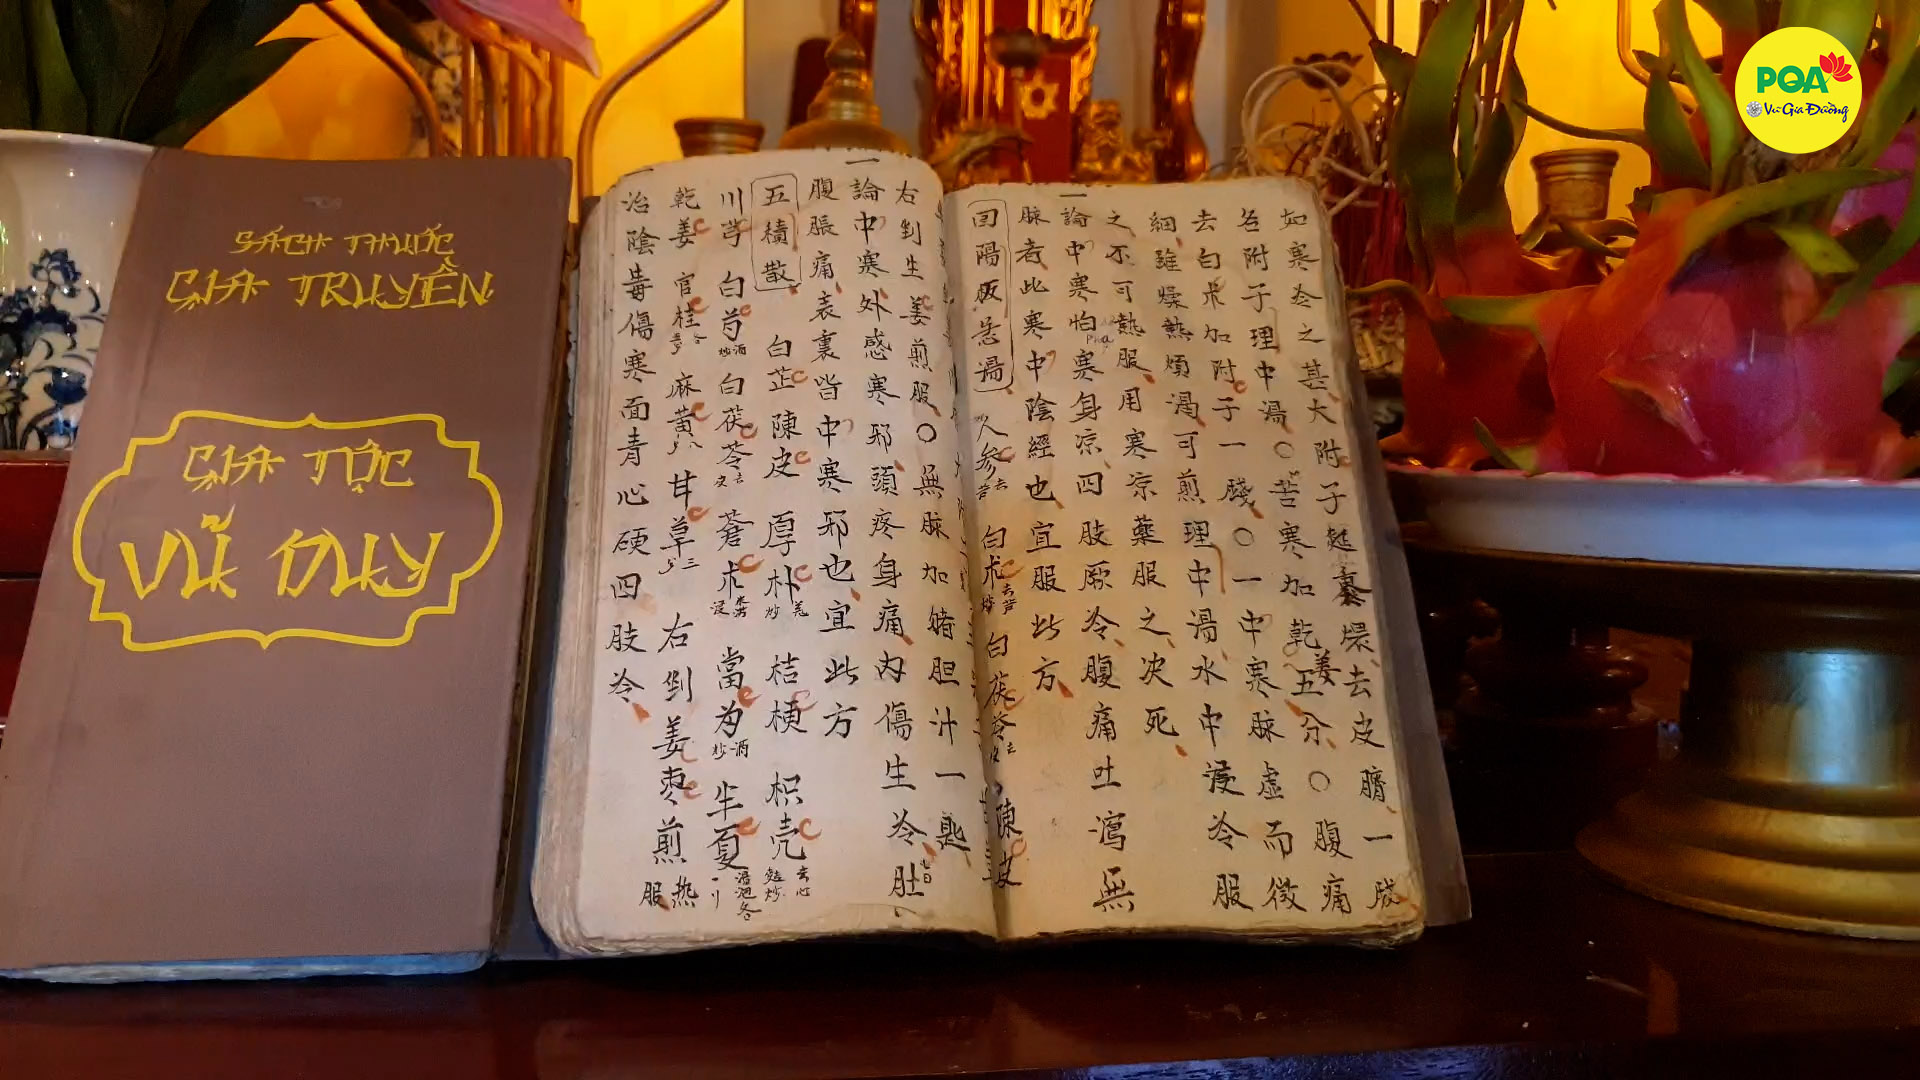 SÁCH THUỐC
GIA TRUYỀN
GIA TỘC
VŨ DUY
PQA
Vũ Gia Đường
如寒冷之甚大附子裹煨去皮臍一戔
名附子理中湯○苦寒加乾姜五分○腹痛
去白朮加附子一錢○一中寒脉虛而微
細雖燥熱煩渴可煎理中湯水中浸冷服
之不可熱服用寒凉藥服之决死
一論中寒怕寒身凉四肢厥冷腹痛吐瀉無
脉者此寒中陰經也宜服此方
回陽急湯 人参去芦 白朮去芦炒 白茯苓去皮 陳皮
右剉生姜煎服○無脉加猪胆汁一匙
一論中寒外感寒邪頭疼身痛內傷生冷肚
腹脹痛表裏皆中寒邪也宜此方
五積散 白芷 陳皮 厚朴姜炒 桔梗 枳壳去心炒
川芎 白芍酒炒 白茯苓去皮 蒼朮米泔浸 當为酒炒 半夏
乾姜 官桂 麻黄 甘草三 右剉姜枣煎热服
治陰毒傷寒面青心硬四肢冷